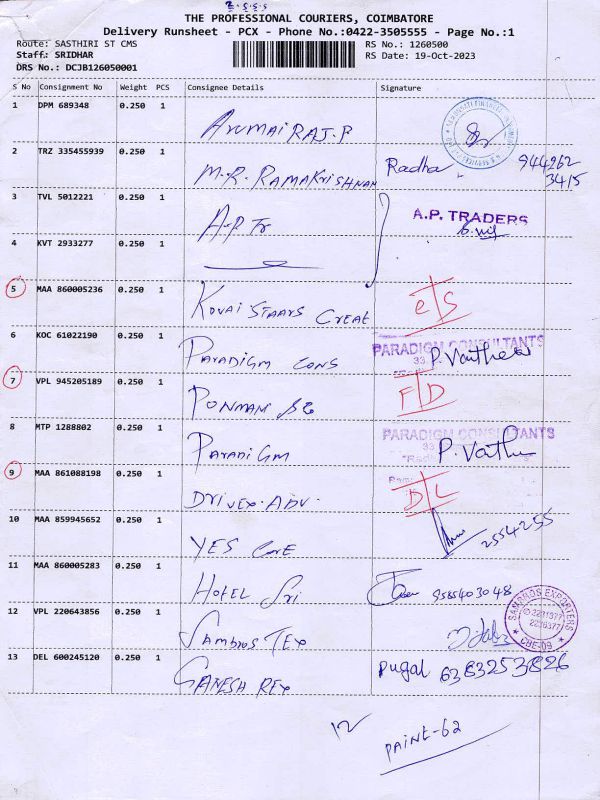 THE PROFESSIONAL COURIERS, COIMBATORE
Delivery Runsheet - PCX - Phone No.:0422-3505555 - Page No.:1
Route: SASTHIRI ST CMS
RS No.: 1260500
Staff: SRIDHAR
RS Date: 19-Oct-2023
DRS No.: DCJB126050001
S No Consignment No Weight PCS Consignee Details Signature
1 DPM 689348 0.250 1 ARUMAI RAJ.P
2 TRZ 335455939 0.250 1 M.R. RAMAKRISHNAN Radha 944962 3415
3 TVL 5012221 0.250 1 A.P.Tr A.P. TRADERS
4 KVT 2933277 0.250 1
5 MAA 860005236 0.250 1 KOVAI STAARS CREAT
6 KOC 61022190 0.250 1 PARADIGM CONS PARADIGM CONSULTANTS
7 VPL 945205189 0.250 1 F D
8 MTP 1288802 0.250 1 PARADIGM PARADIGM CONSULTANTS
9 MAA 861088198 0.250 1 DRIVEX. ADV. D L
10 MAA 859945652 0.250 1 YES CARE 2554255
11 MAA 860005283 0.250 1 HOTEL Sri 9585403048
12 VPL 220643856 0.250 1 SAMBROS TEX SAMBROS EXPORTERS CBE-09
13 DEL 600245120 0.250 1 GANESH REX Pugal 6383253826
12
PAINT-62